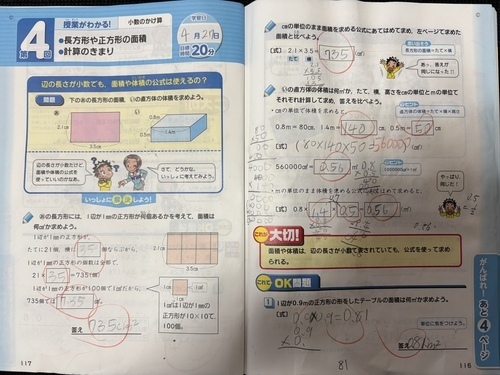 第4回
授業がわかる!
小数のかけ算
●長方形や正方形の面積
●計算のきまり
学習日
4月29日
目標時間 20分
辺の長さが小数でも、面積や体積の公式は使えるの?
問題
下のあの長方形の面積、いの直方体の体積を求めよう。
2.1cm
3.5cm
0.5m
1.4m
0.8m
辺の長さが小数だけど、
面積や体積の公式を
使っていいのかなあ。
さて、どうかな。
いっしょに考えてみよう。
いっしょに解決しよう!
あの長方形には、1辺が1mmの正方形が何個あるかを考えて、面積は
何cm²か求めよう。
1辺が1mmの正方形が、
たてに21個、横に
21×
=735(個)
1辺が1mmの正方形の個数は
1辺が1mmの正方形が100個で1cm²だから、
735個では
735
cm²
2.1cm
3.5cm
1cm
1cm²は1辺が1mm
の正方形が10×10で、
100個。
答え 7.35cm²
117
cmの単位のまま面積を求める公式にあてはめて求め、左ページで求めた
面積と比べよう。
2.1×3.5=
7.35
たて
横
長方形の面積=たて×横
あっ、答えが
同じになった!!
いの直方体の体積は何m³か、たて、横、高さをcmの単位とmの単位で
それぞれ計算して求め、答えを比べよう。
直方体の体積=たて×横×高さ
・cmの単位で体積を求めると、
0.8m=80cm、1.4m=
140
0.5m=
50
(式)
80×140×50=560000
560000cm³=
0.56
m³
・mの単位のまま体積を求める公式にあてはめて求めると、
(式) 0.8×
1.4
×
0.5
=
0.56
やっぱり、
同じだ!
0.56
これが大切!
面積や体積は、辺の長さが小数で表されていても、公式を使って求め
られる。
これでOK問題
1 1辺が0.9mの正方形の形をしたテーブルの面積は何m²か求めよう。
(式)
0.9×0.9=0.81
0.9
単位に気をつけよう。
答え 0.81m²
81
116
がんばれ!あと4ページ